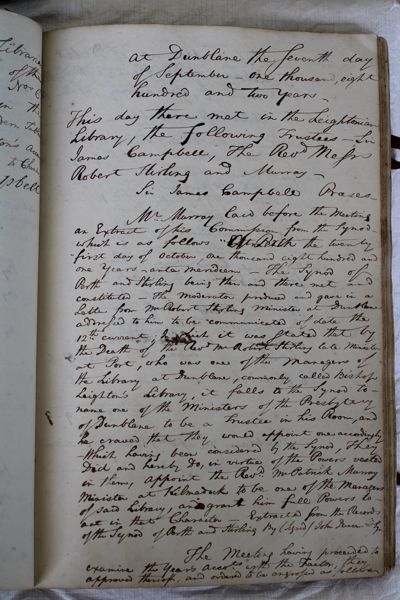 Librari
of the
Nov
in the
to Cha
pbell
at Dunblane the Seventh day
of September - one thousand, eight
hundred and two Years -
This day there met in the Leightonian
Library, the following Trustees - Sir
James Campbell, The Revd Messrs
Robert Stirling and Murray -
Sir James Campbell Preses -
Mr Murray laid before the Meeting
an Extract of his Commission from the Synod
which is as follows "At Perth the twenty
first day of October one thousand eight hundred and
one Years - ante meridiem - The Synod of
Perth and Stirling being then and there met and
constituted - The Moderator produced and gave in a
Letter from Mr Robert Stirling Minister at Dunblane
addressed to him to be communicated of date the
12th current, by which it was stated that by
the Death of the Revd Mr Robert Stirling late Minister
at Port, who was one of the Managers of
the Library at Dunblane, commonly called Bishop
Leighton's Library, it falls to the Synod to
name one of the Ministers of the Presbytery
of Dunblane to be a Trustee in his Room, and
he craved that they would appoint one accordingly
Which having been considered by the Synod, they
Did and hereby Do, in virtue of the Powers vested
in them, appoint the Revd Mr Patrick Murray
Minister at Kilmadock to be one of the Managers
of said Library, and grant him full Powers to
act in that Character - Extracted from the Records
of the Synod of Perth and Stirling By (Signed) John
The Meeting having proceeded to
examine the Years accots with the Factor, they
approved thereof, and ordered to be engrossed as follows